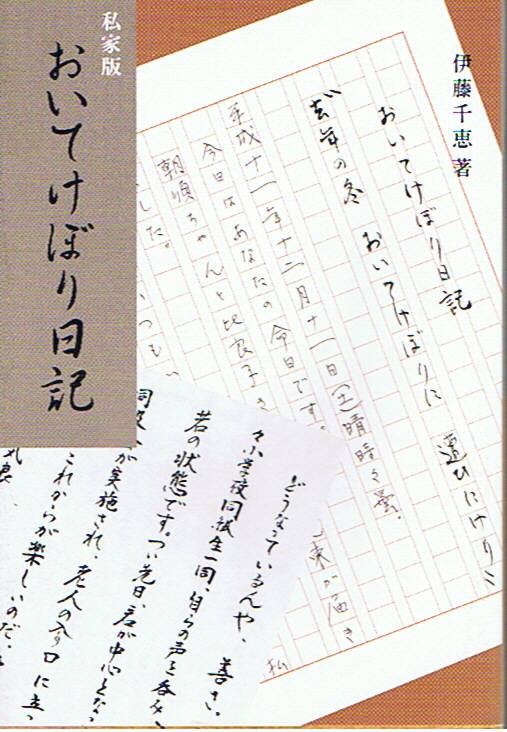 私家版
おいてけぼり日記
伊藤千恵 著
おいてけぼり日記
去年の冬 おいてけぼりに
平成十一年十二月十一日(土)晴時々曇、
今日はあなたの命日です。
朝順ちゃんと比良子
した。
いつも
が届き
私
どうなっているんや、善さ。
々小学校同級生一同、自らの声を呑み
若の状態です。つい先日、君が中心となっ
が実施され、老人の入り口に立っ
これからが楽しいのだ、
気良